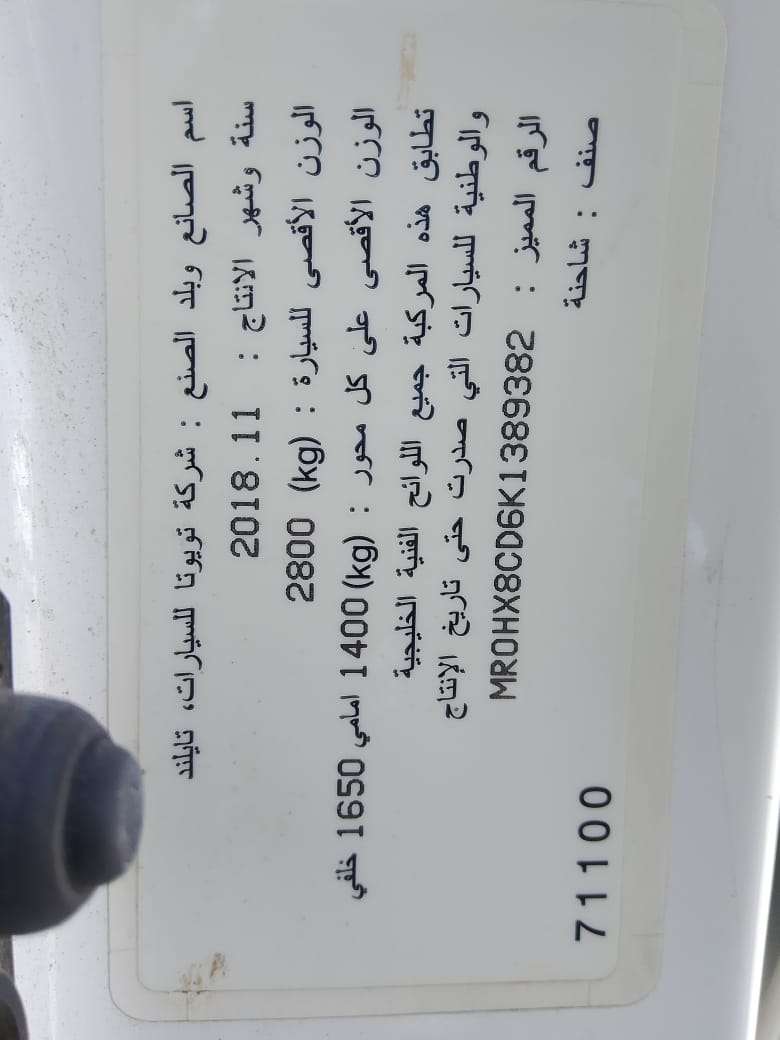 اسم الصانع وبلد الصنع : شركة تويوتا للسيارات، تايلند
سنة وشهر الانتاج : 2018.11
الوزن الأقصى للسيارة : (kg) 2800
الوزن الأقصى على كل محور : (kg) 1400 امامي 1650 خلفي
تطابق هذه المركبة جميع اللوائح الفنية الخليجية
والوطنية للسيارات التي صدرت حتى تاريخ الإنتاج
الرقم المميز : MR0HX8CD6K1389382
صنف : شاحنة
71100